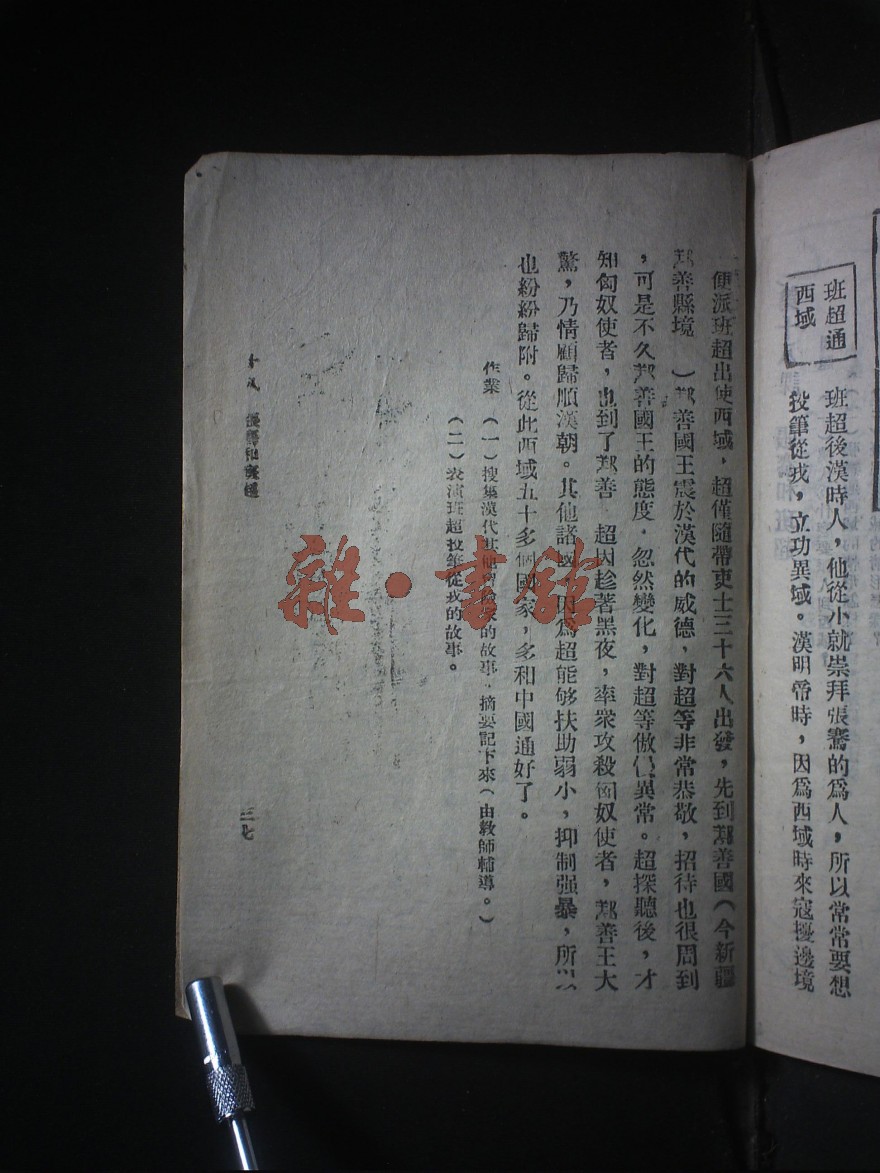 班超通
西域
班超後漢時人，他從小就崇拜張騫的爲人，所以常常要想
投筆從戎，立功異域。漢明帝時，因爲西域時來寇擾邊境
，便派班超出使西域，超僅隨帶吏士三十六人出發，先到鄯善國（今新疆
鄯善縣境　）鄯善國王震於漢代的威德，對超等非常恭敬，招待也很周到
，可是不久鄯善國王的態度，忽然變化，對超等傲異常。超探聽後，才
知匈奴使者，也到了鄯善　超因趁著黑夜，率衆攻殺匈奴使者，鄯善王大
驚，乃情願歸順漢朝。其他諸國，因爲超能够扶助弱小，抑制强暴，所以
也紛紛歸附。從此西域五十多個國家，多和中國通好了。
作業　（一）搜集漢代其他的故事，摘要記下來（由教師輔導。）
（二）表演班超投筆從戎的故事。
張騫和班超
三七
雜·書館